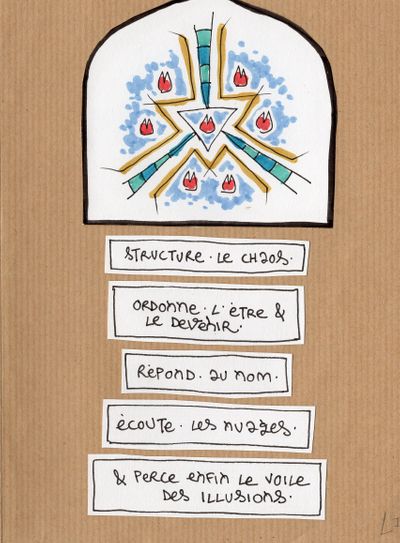 STRUCTURE. LE CHAOS.
ORDONNE. L'ÊTRE &
LE DEVENIR.
RÉPOND. AU NOM.
ÉCOUTE. LES NUAGES.
& PERCE ENFIN LE VOILE
DES ILLUSIONS.